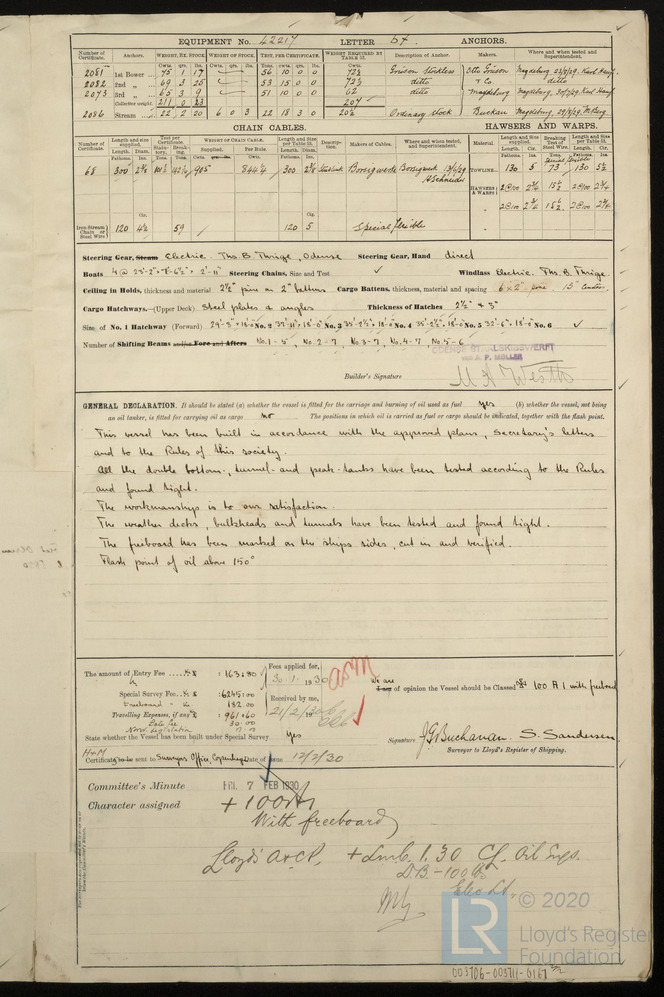 EQUIPMENT No. 42217 LETTER bt. ANCHORS.
Number of Certificate. Anchors. WEIGHT, EX. STOCK. WEIGHT OF STOCK. TEST, PER CERTIFICATE. WEIGHT REQUIRED BY TABLE 31. Description of Anchor. Makers. Where and when tested and Superintendent.
Cwts. qrs. lbs. Cwts. qrs. lbs. Tons. cwts. qrs. lbs. Cwts.
2081 1st Bower 75 1 17 56 10 0 0 72½ Gruson Stockless Otto Gruson Magdeburg
2082 2nd „ 69 3 25 53 15 0 0 72½ ditto & Co. ditto
2073 3rd „ 65 3 9 51 10 0 0 62 ditto Magdeburg Magdeburg, 30/7/29. Karl Hauf
Collective weight. 211 0 23 207
2086 Stream 22 2 20 6 0 3 22 18 3 0 20½ Ordinary stock Buckau Magdeburg,
CHAIN CABLES. HAWSERS AND WARPS.
Number of Certificate. Length and size supplied. Test per Certificate. WEIGHT OF CHAIN CABLE. Length and size per Table 31. Description. Makers of Cables. Where and when tested, and Superintendent. Material. Length and size supplied. Breaking Test of Steel Wire. Length and size per Table 31.
Length. Diam. Statutory. Breaking. Supplied. Per Rule. Length. Diam. Length. Cir. Length. Cir.
Fathoms. Ins. Tons. Tons. Cwts. Cwts. Fathoms. Ins. Fathoms. Ins. Tons. Fathoms. Ins.
68 300 2⅜ 905 844¼ 300 2⅜ Borsigwerk Borsigwerk TOWLINE 130 5 73 130 5½
HAWSERS & WARPS 2@100 2¾ 15½ 2@100 2¾
„ 2@100 2¾ 15½ 2@100 2¾
Iron Stream Chain or Steel Wire 120 4½ 59 120 5 Special flexible „
Steering Gear, Steam Electric. Ths. B. Thrige, Odense Steering Gear, Hand direct
Boats 4 @ 23'-2" × 8'-6½" × 2'-11" Steering Chains, Size and Test ✓ Windlass Electric. Ths. B. Thrige.
Ceiling in Holds, thickness and material 2½" pine on 2" battens Cargo Battens, thickness, material and spacing 6 x 2" pine 15" centres.
Cargo Hatchways.—(Upper Deck) Steel plates & angles Thickness of Hatches 2½" & 3"
Size of No. 1 Hatchway (Forward) 29'-3" × 18'-0" No. 2 37'-11" × 18'-0" No. 3 35'-2½" × 18'-0" No. 4 35'-2½" × 18'-0" No. 5 32'-6" × 18'-0" No. 6 ✓
Number of Shifting Beams and/or Fore and Afters No.1 - 5, No.2 - 7, No.3 - 7, No.4 - 7, No.5 - 6
ODENSE STAALSKIBSVÆRFT
VED A. P. MØLLER
Builder's Signature
GENERAL DECLARATION. It should be stated (a) whether the vessel is fitted for the carriage and burning of oil used as fuel yes (b) whether the vessel, not being
an oil tanker, is fitted for carrying oil as cargo no The positions in which oil is carried as fuel or cargo should be indicated, together with the flash point.
This vessel has been built in accordance with the approved plans, Secretary's letters
and to the Rules of this society.
All the double bottom-, tunnel- and peak-tanks have been tested according to the Rules
and found tight.
The workmanships is to our satisfaction.
The weather decks, bulkheads and tunnels have been tested and found tight.
The freeboard has been marked on the ships sides, cut in and verified.
Flash point of oil above 150°
The amount of Entry Fee Kr : 163.80
Special Survey Fee Kr : 6245.00
Freeboard - Kr 182.00
Travelling Expenses, if any £ : 961.60
Late fee 30.00
Fees applied for,
30.1. 1930
Received by me,
21/2/30
We are
I am of opinion the Vessel should be Classed 100 A 1 with freeboard
State whether the Vessel has been built under Special Survey. Yes
Signature J G Buchanan S. Sandersen
Surveyor to Lloyd's Register of Shipping.
H+M
Certificate to be sent to Surveyors Office, Copenhagen Date of issue 12/2/30
Committee's Minute FRI. 7 FEB 1930
Character assigned + 100A1
With freeboard
Lloyd's A&CP, + Lmc 1.30 CL Oil Engs.
D.B. - 100 lb
Elec Lt.
LR
© 2020
Lloyd's Register
Foundation
003706-003711-0167 ½